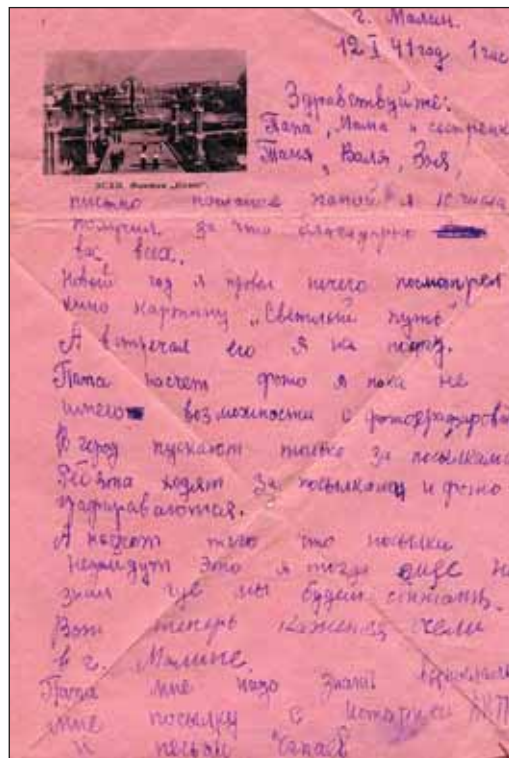 г. Малин.
12 I 41 год 1 час
Здравствуйте:
Папа, Мама и сестренк
Таня, Валя, Зоя,
письмо папой я 10 числа
получил за что благодарю
вас всех.
Новый год я провел ничего посмотрел
кино картину „Светлый путь"
А встречал его я на посту.
Папа насчет фото я пока не
имею возможности с фотографирова
В город пускают только за посылками
Ребята ходят за посылками и фото
графираваются.
А насчот того что посылки
недойдут это я тогда еще не
знал где мы будем стоять.
Вот теперь кажется сели
в г. Малине.
Папа мне надо знать
мне посылку с историей
и песни Чапаев